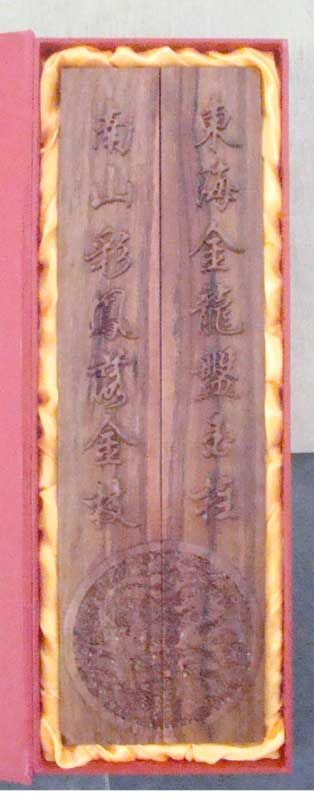 東海金龍盤玉柱
南山彩鳳落金枝